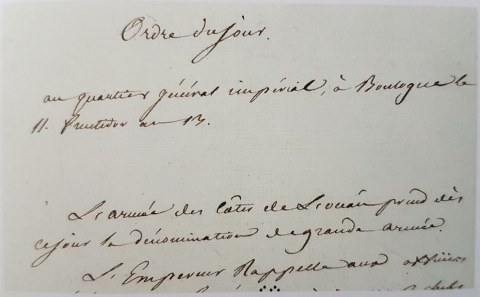 Ordre du Jour.
au quartier général impérial, à Boulogne le
11. fructidor an 13.
L'armée des Côtes de L'océan prend dès
ce jour la dénomination de grande armée.
L'Empereur Rappelle aux officiers